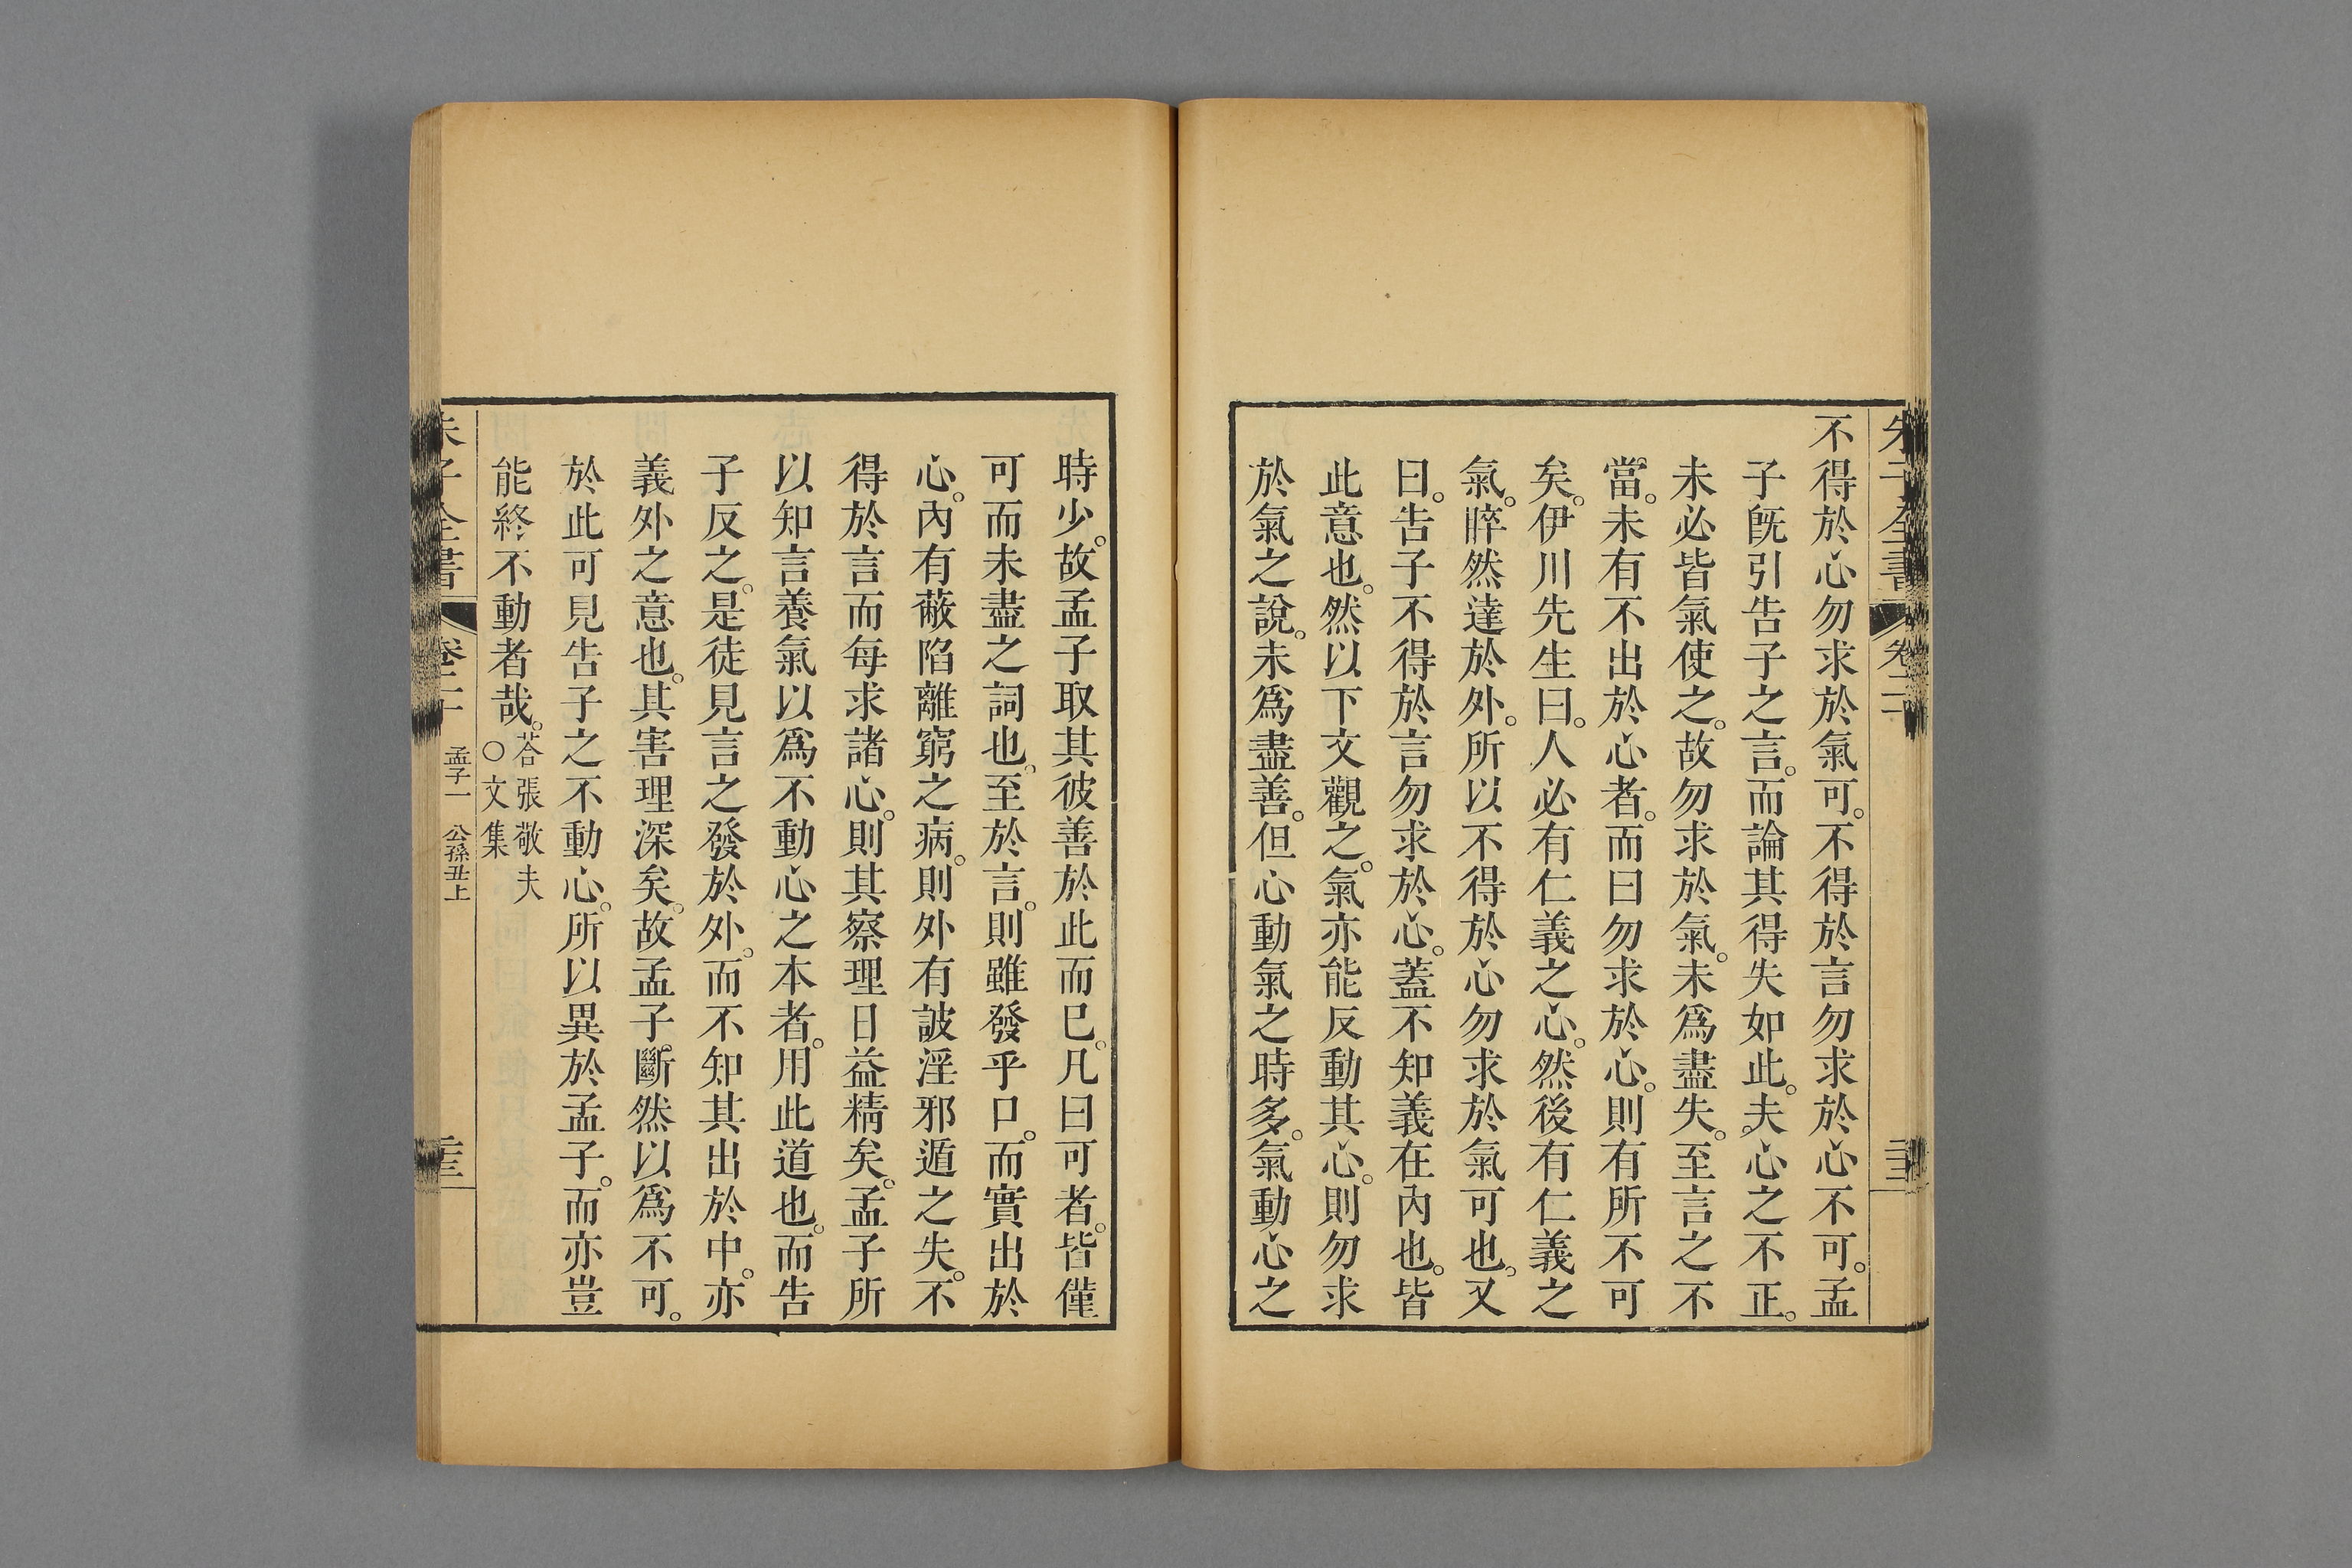 朱子全書 卷二十
不得於心勿求於氣可。不得於言勿求於心不可。孟
子旣引告子之言。而論其得失如此。夫心之不正。
未必皆氣使之。故勿求於氣。未爲盡失。至言之不
當。未有不出於心者。而曰勿求於心。則有所不可
矣。伊川先生曰。人必有仁義之心。然後有仁義之
氣。睟然達於外。所以不得於心勿求於氣可也。又
曰。告子不得於言勿求於心。蓋不知義在內也。皆
此意也。然以下文觀之。氣亦能反動其心。則勿求
於氣之說。未爲盡善。但心動氣之時多。氣動心之
時少。故孟子取其彼善於此而已。凡曰可者。皆僅
可而未盡之詞也。至於言。則雖發乎口。而實出於
心。內有蔽陷離窮之病。則外有詖淫邪遁之失。不
得於言而每求諸心。則其察理日益精矣。孟子所
以知言養氣以爲不動心之本者。用此道也。而告
子反之。是徒見言之發於外。而不知其出於中。亦
義外之意也。其害理深矣。故孟子斷然以爲不可。
於此可見告子之不動心。所以異於孟子。而亦豈
能終不動者哉。荅張敬夫
○文集
朱子全書 卷二十 孟子一 公孫丑上